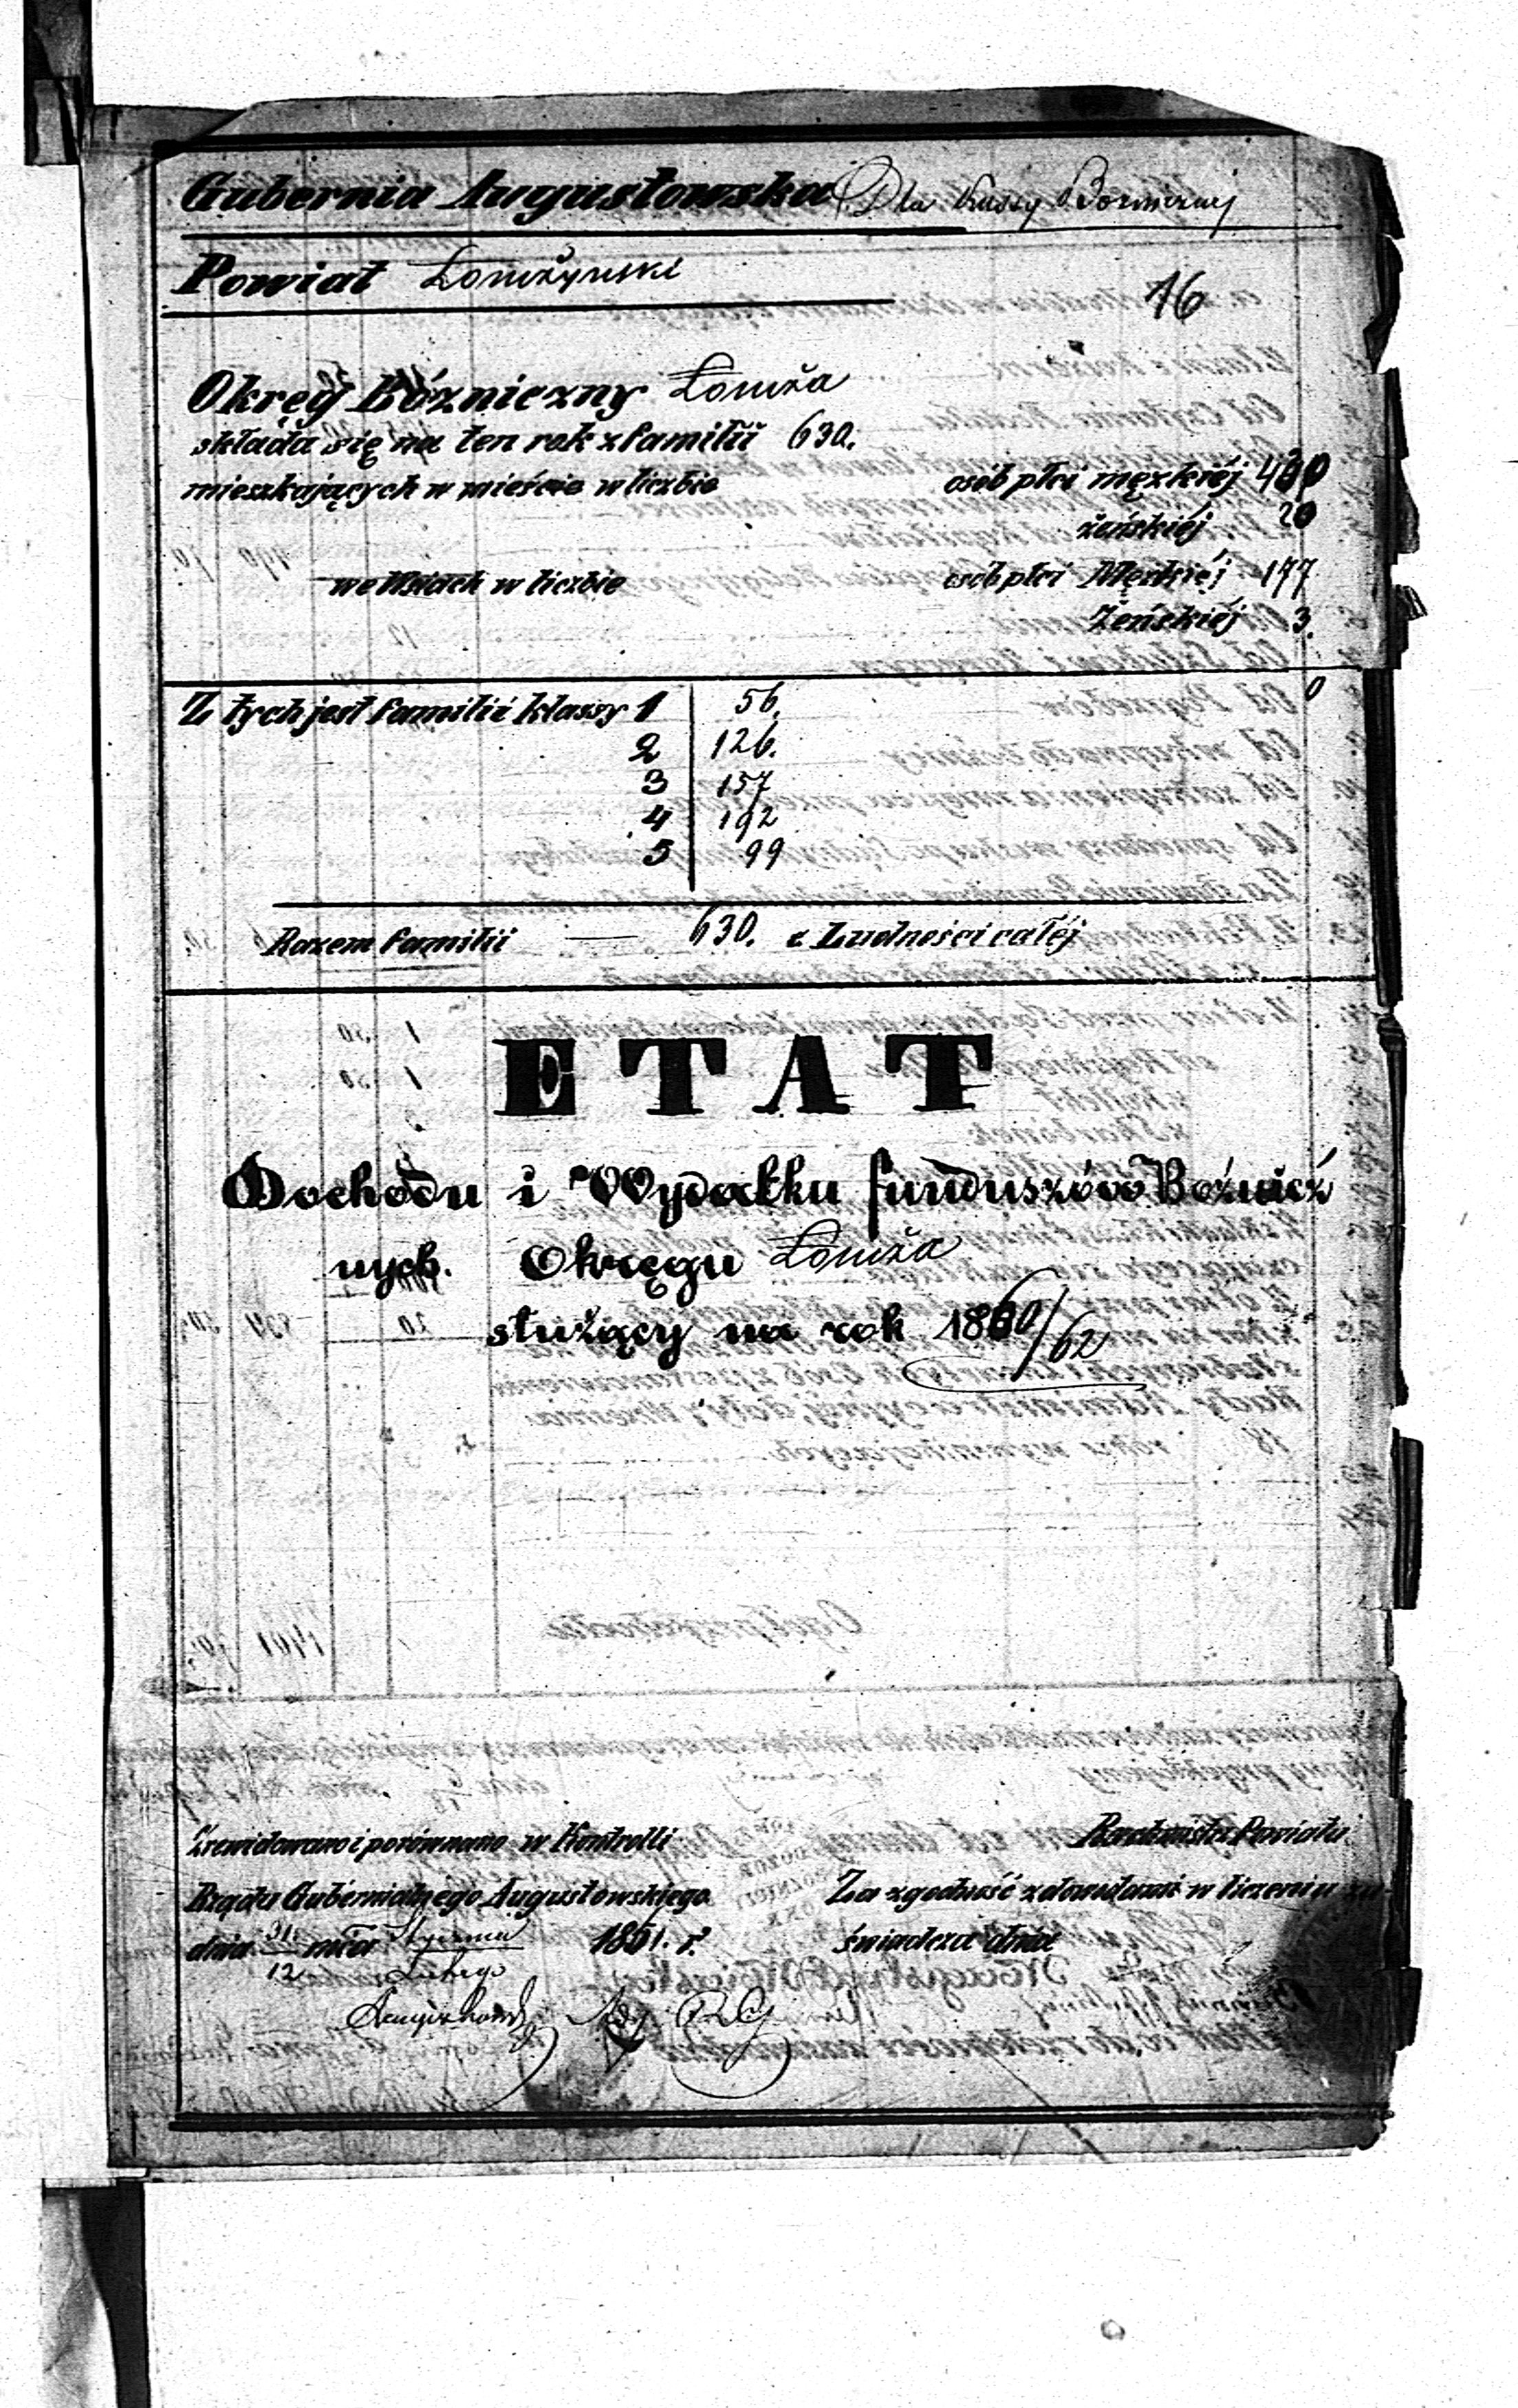 Gubernia Augustowska Dla Kassy Bożnicznej
Powiat Łomżyński
16
Okręg Bóżniczny Łomża
składa się na ten rok z familii 630.
mieszkających w mieście w liczbie osób płci męzkiéj 430
żeńskiéj 20
we Wsiach w liczbie osób płci Męzkiéj 177
Żeńskiéj 3.
Z tych jest familii klassy 1 56.
2 126.
3 157
4 192
5 99
Razem familii — 630. z Ludności całéj
ETAT
Dochodu i Wydatku funduszów Bóźnicz
nych. Okręgu Łomża
służący na rok 1860/62
Zrewidowano i porównano w Kontrolli Rachmistrz Powiatu
Rządu Gubernialnego Augustowskiego Za zgodność z dowodami w liczeniu
dnia 31/12 mca Stycznia/Lutego 1861. r. świadczą dnia